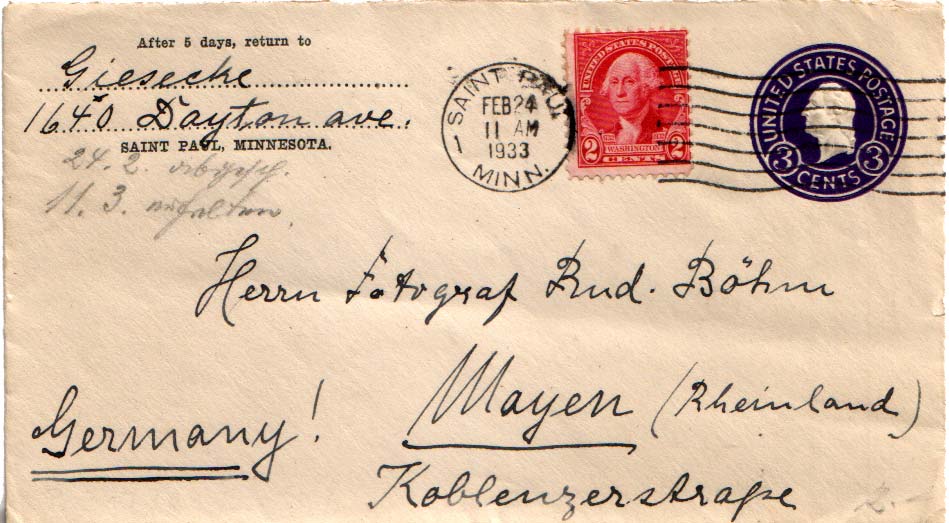 After 5 days, return to
Giesecke
1640 Dayton ave.
SAINT PAUL, MINNESOTA.
24. 2. abgesch.
11. 3. erhalten
SAINT PAUL
FEB 24
11 AM
1933
MINN.
1
UNITED STATES POSTAGE
WASHINGTON
2 CENTS 2
UNITED STATES POSTAGE
3 CENTS 3
Herrn Fotograf Rud. Böhm
Mayen (Rheinland)
Germany!
Koblenzerstraße